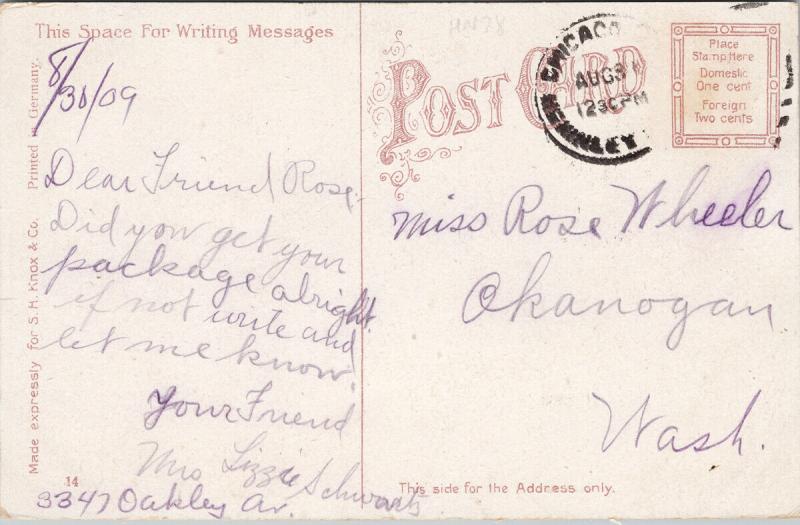 This Space For Writing Messages
8/30/09
Dear Friend Rose:
Did you get your
package alright
if not write and
let me know.
Your Friend
Mrs Lizzie Schwartz
3347 Oakley Av.
14
Made expressly for S. H. Knox & Co. Printed in Germany.
HN78
POST CARD
CHICAGO
AUG 31
1230PM
Place
Stamp Here
Domestic
One cent
Foreign
Two cents
Miss Rose Wheeler
Okanogan
Wash.
This side for the Address only.